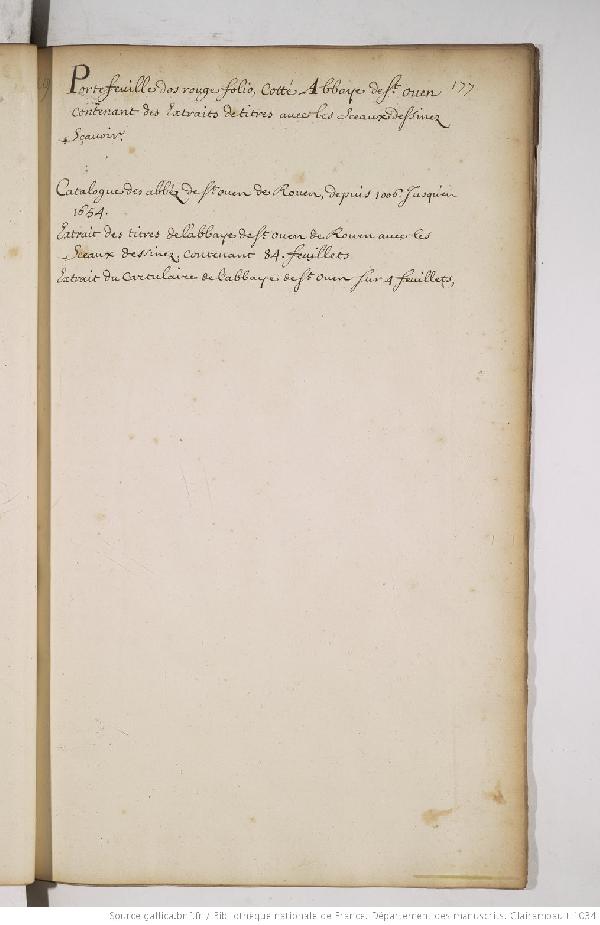 Portefeuille dos rouge folio, Cotté Abbaye de St. ouen 177
Contenant des Extraits de titres avec les Sceaux dessinez
Sçavoir.
Catalogue des abbéz de St ouen de Rouen, depuis 1006. Jusqu'en
1654.
Extrait des titres de l'abbaye de St ouen de Rouen avec les
Sceaux dessinez, contenant 84. feuillets
Extrait du Cartulaire de l'abbaye de St. Ouen sur 4 feuillets,
Source gallica.bnf.fr / Bibliothèque nationale de France. Département des manuscrits. Clairambault 1034